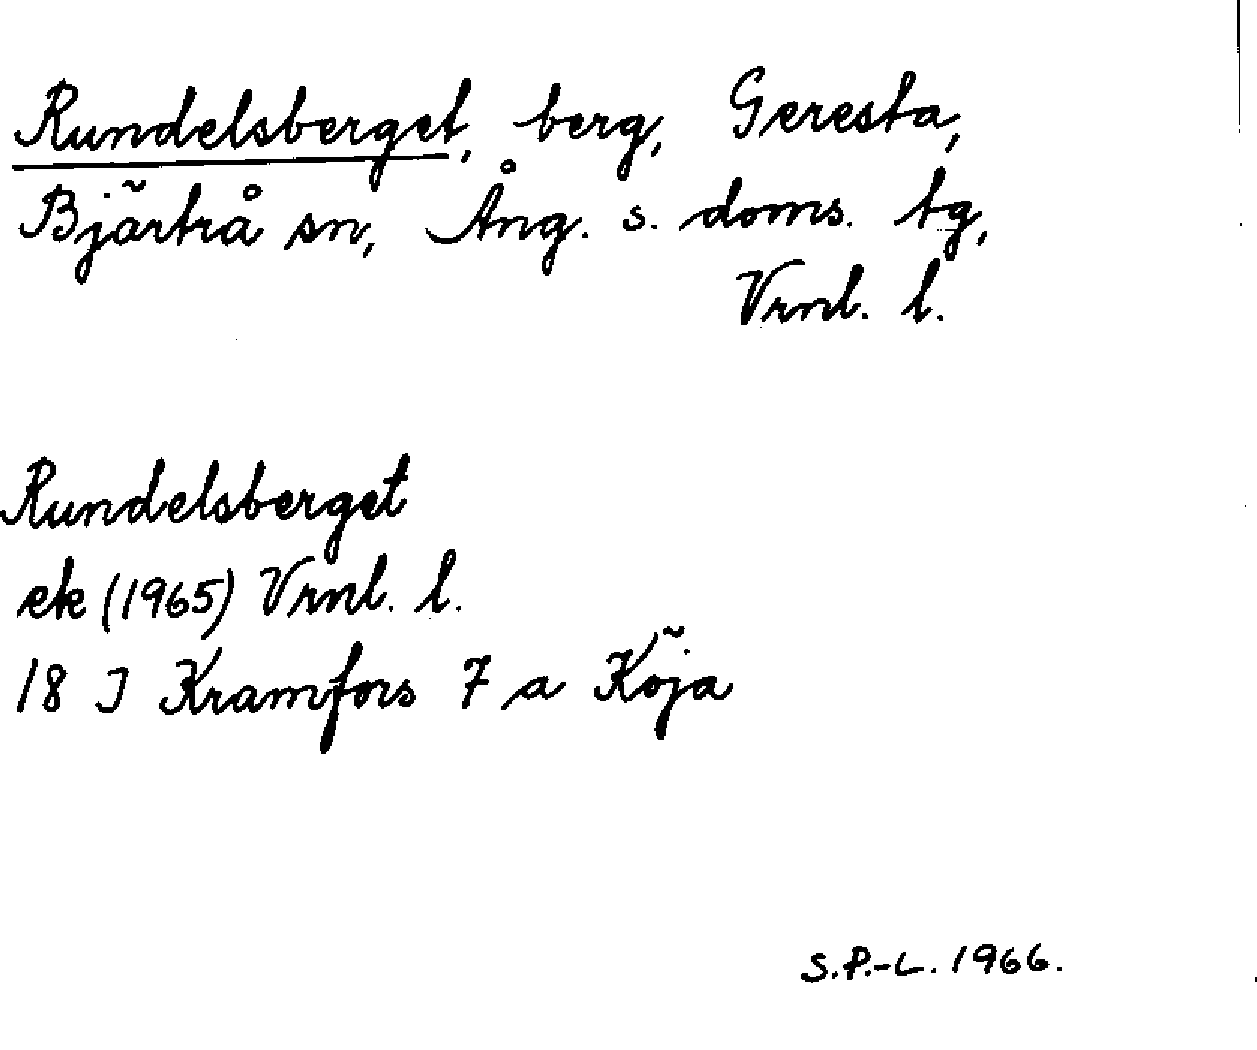 Rundelsberget, berg, Geresta,
Bjärtrå sn, Ång. s. doms. tg,
Vrnl. l.
Rundelsberget
ek (1965) Vrnl. l.
18 J Kramfors 7 a Köja
S.P.-L. 1966.